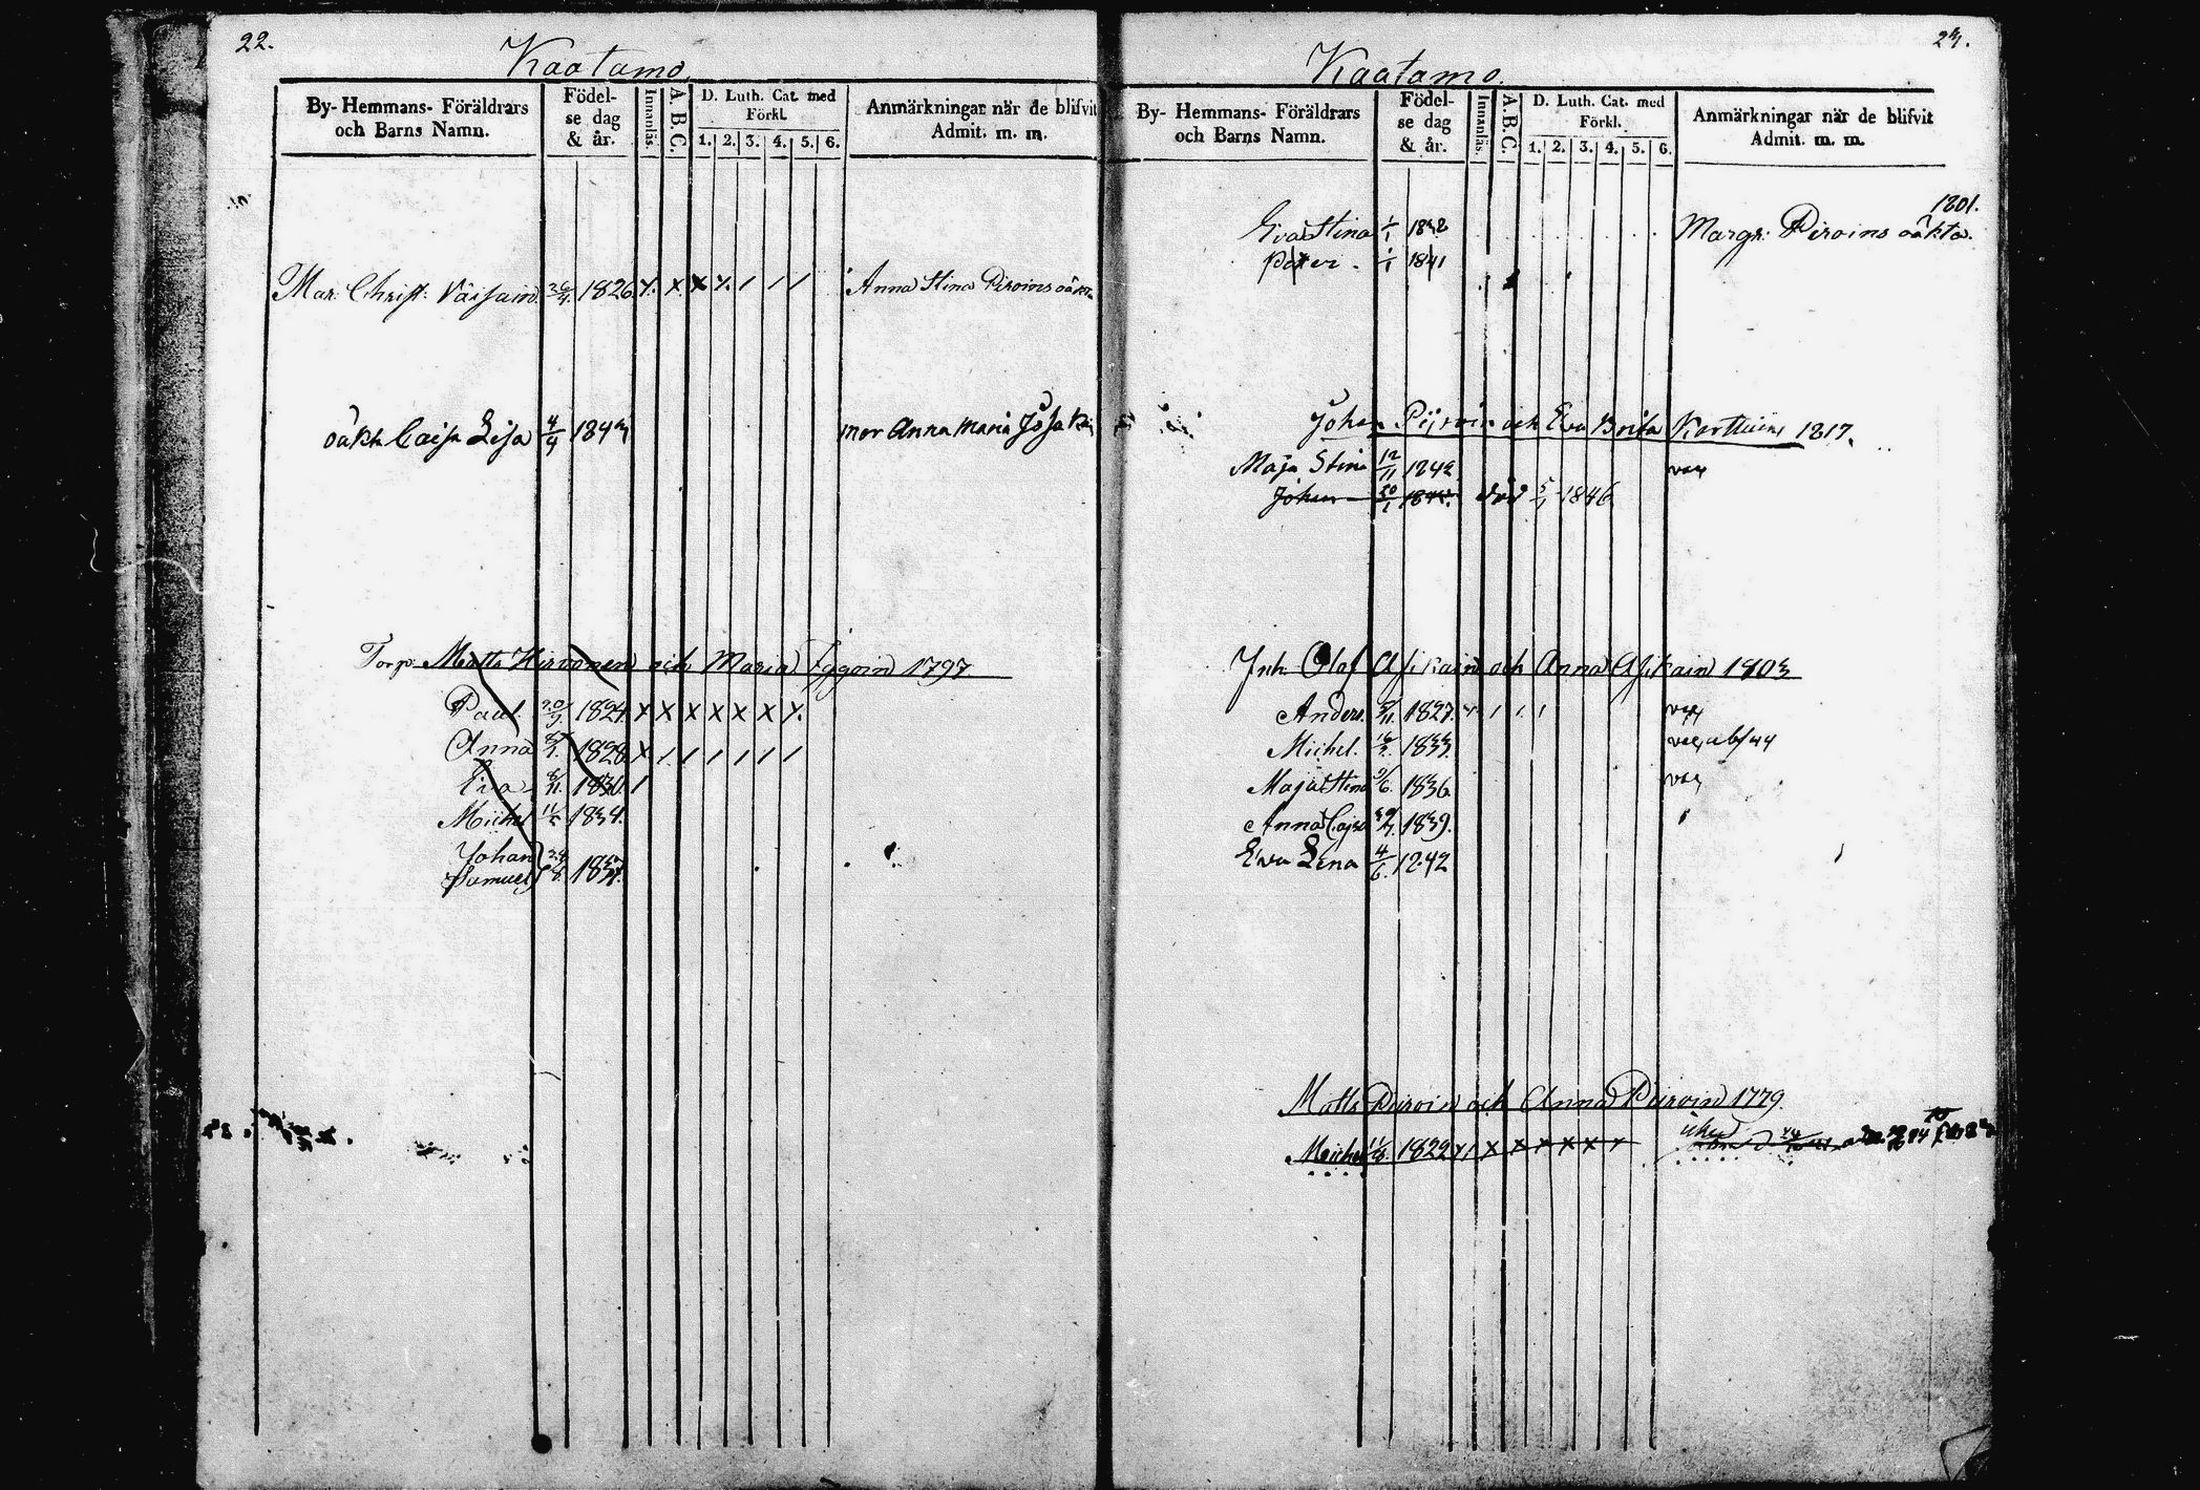 22.
Kaatamo
By- Hemmans- Föräldrars och Barns Namn.
Födelse dag & år.
Innanläs.
A. B. C.
D. Luth. Cat. med Förkl.
1. 2. 3. 4. 5. 6.
Anmärkningar när de blifvit Admit. m. m.
Mar: Christ: Väisäin 26/4. 1826. Anna Stina Piroins oäkta
oäkta Caisa Lisa 4/9 1843 mor Anna Maria
Torp. Matts Hirvonen och Maria 1797.
Paul. 1824. x x x x x x x
Anna 1828. x / / / / / /
Eva 8/11. 1830. /
Michel 1834.
Johan
Samuel 1837.
23.
Kaatamo.
By- Hemmans- Föräldrars och Barns Namn.
Födelse dag & år.
Innanläs.
A. B. C.
D. Luth. Cat. med Förkl.
1. 2. 3. 4. 5. 6.
Anmärkningar när de blifvit Admit. m. m.
1801.
Eva Stina 1/1 1842 Margr: Piroins oäkta.
Peter. 1/1 1841
Johan och Eva Brita 1817.
Maja Stina 12/11 1842 vac
Johan död 5/1 1846
Inh. Olof Asikain och Anna Asikain 1803
Anders. 1827. vac
Michel. 16/ 1833. vac, abs 44
Maja Stina 9/6. 1836 vac
Anna Cajsa 1839.
Eva Lena 4/6. 1842
Matts Piiroin och Anna Piiroin 1779.
Michel 1822 x x x x x x